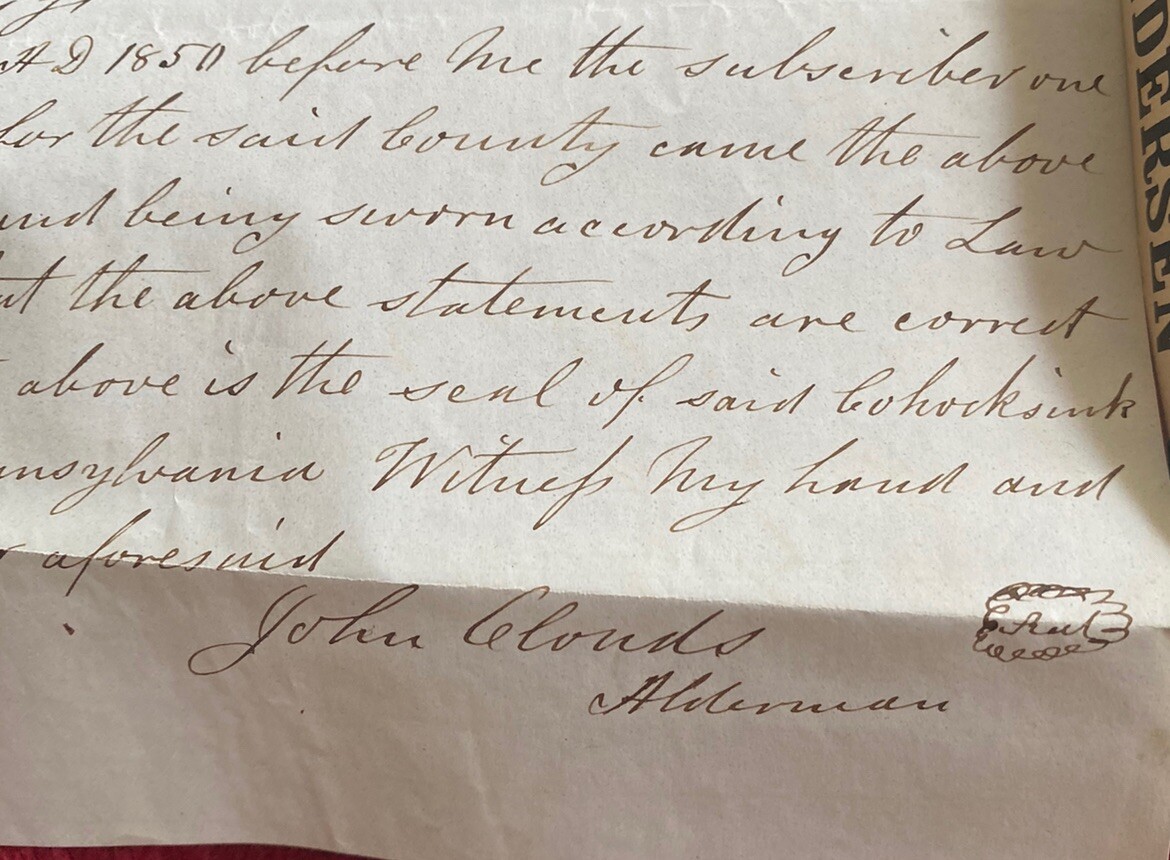 A D 1850 before Me the subscriber one
for the said County came the above
and being sworn according to Law
the above statements are correct
above is the seal of said Cohocksink
nnsylvania Witness My hand and
aforesaid
John Clouds
Seal
Alderman
DERSEN